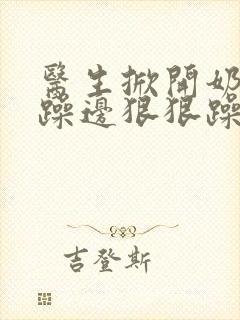 醫生掀開奶
躁邊狠狠躁
吉登斯